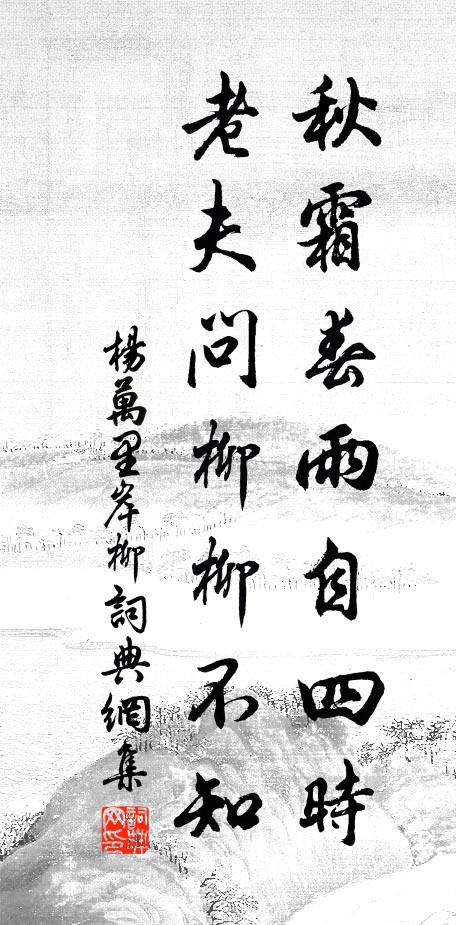 秋霜春雨自四時
老夫問柳柳不知
楊萬里岸柳詞典網集